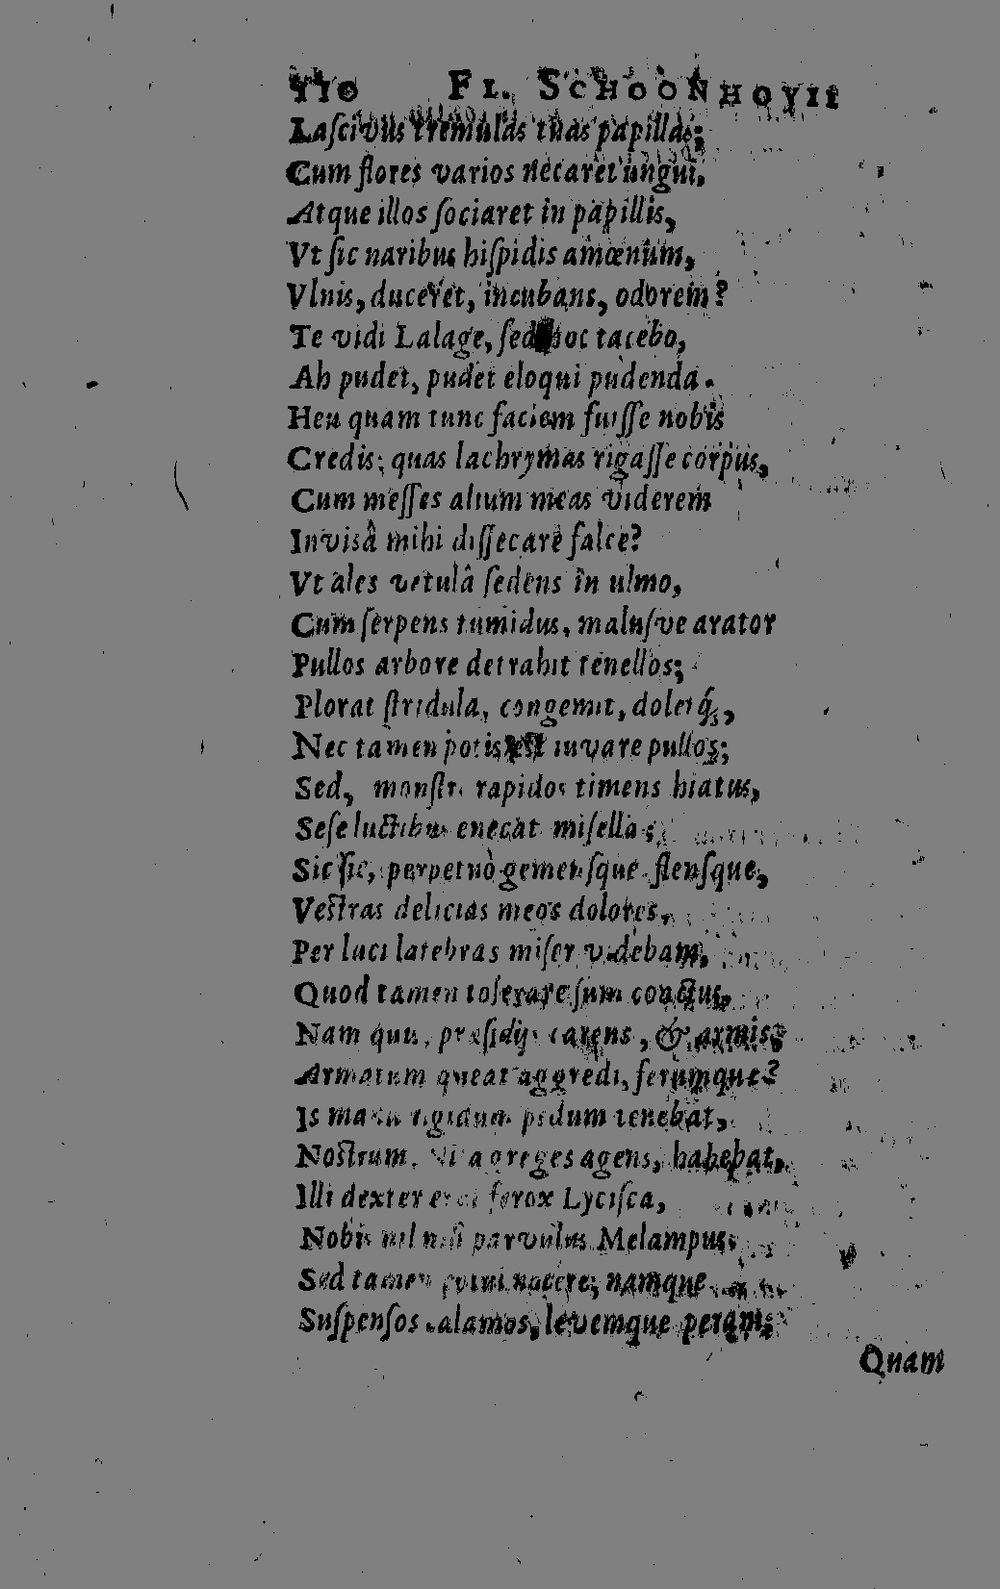 110 FL. SCHOONHOVII
Laſcivus tremulas tuas papillas;
Cum flores varios necaret ungui,
Atque illos ſociaret in papillis,
Vt ſic naribus hiſpidis amœnum,
Vlnis, duceret, incubans, odorem?
Te vidi Lalage, ſed hoc tacebo,
Ah pudet, pudet eloqui pudenda.
Heu quam tunc faciem fuiſſe nobis
Credis; quas lachrymas rigaſſe corpus,
Cum meſſes alium meas viderem
Invisâ mihi diſſecare falce?
Vt ales vetulâ ſedens in ulmo,
Cum ſerpens tumidus, maluſve arator
Pullos arbore detrahit tenellos;
Plorat ſtridula, congemit, doletq́,
Nec tamen potis est iuvare pullos;
Sed, monſtri rapidos timens hiatus,
Seſe luctibus enecat miſella;
Sic ſic, perpetuò gemenſque flenſque,
Vestras delicias meos dolores,
Per luci latebras miſer videbam,
Quod tamen tolerare ſum coactus,
Nam quis, præſidijs carens, & armis,
Armatum queat aggredi, ferumque?
Is manu rigidum pedum tenebat,
Nostrum, greges agens, habebat,
Illi dexter erat ferox Lyciſca,
Nobis nil niſi parvulus Melampus,
Sed tamen potui nocere; namque
Suſpenſos calamos, levemque peram;
Quam